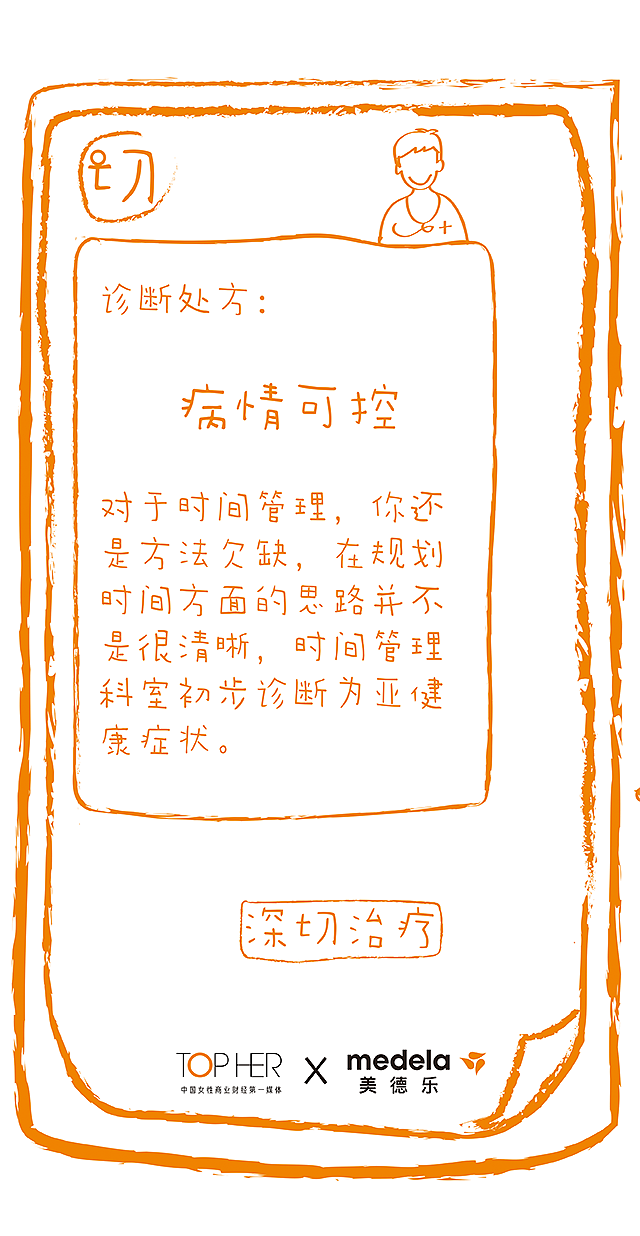 切
诊断处方：
病情可控
对于时间管理，你还
是方法欠缺，在规划
时间方面的思路并不
是很清晰，时间管理
科室初步诊断为亚健
康症状。
深切治疗
TOPHER X medela
中国女性商业财经第一媒体 美德乐